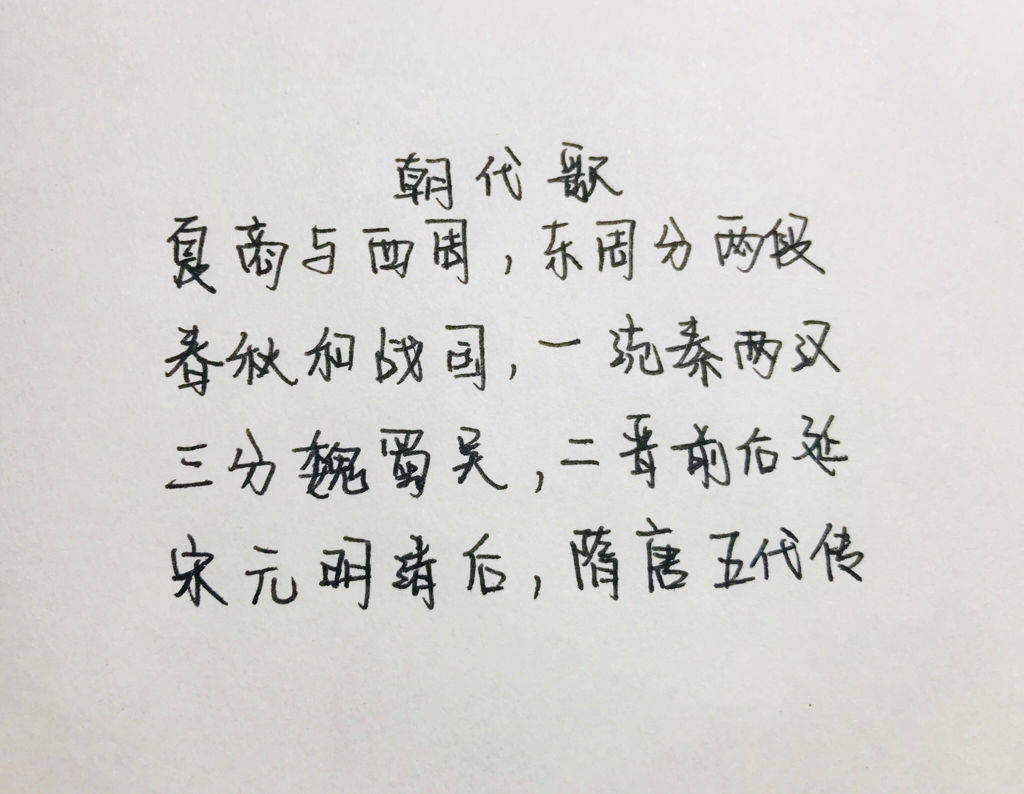 朝代歌
夏商与西周,东周分两段
春秋和战国,一统秦两汉
三分魏蜀吴,二晋前后延
宋元明清后,隋唐五代传